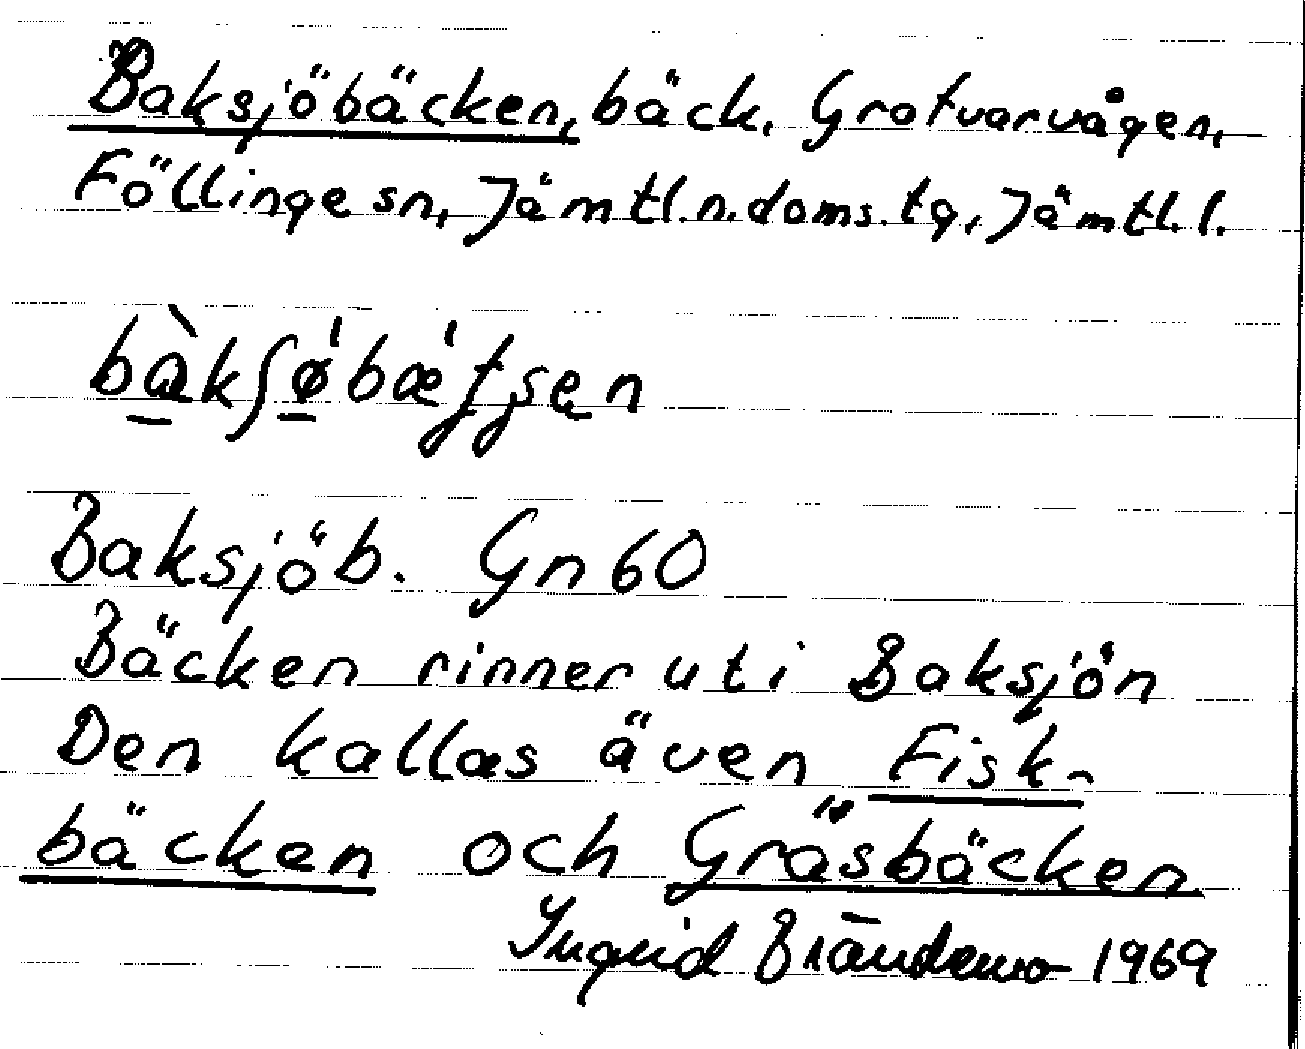 Baksjöbäcken, bäck. Grotvarvågen,
Föllinge sn, Jämtl.n.doms.tg, Jämtl.l.
Baksjöb. Gn 60
Bäcken rinner ut i Baksjön
Den kallas även Fisk-
bäcken och Gräsbäcken
Ingrid Brändemo 1969